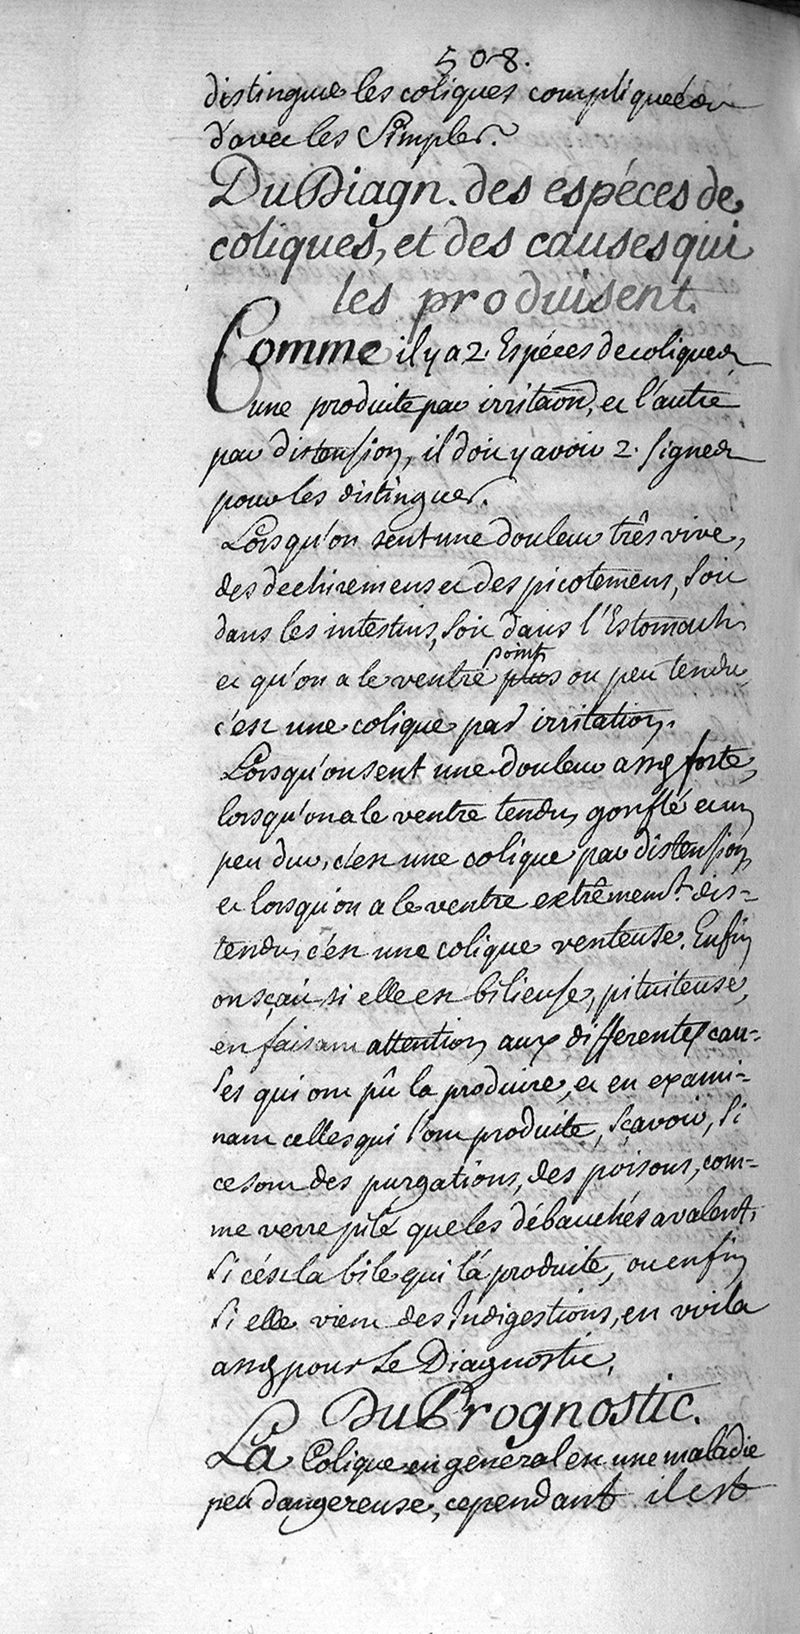 508.
distingue les coliques compliquées
d'avec les Simples.
Du Diagn. des espéces de
coliques, et des causes qui
les produisent.
Comme il y a 2. Espéces de coliques
une produite par irritaōn, et l'autre
par distension, il doit y avoir 2. signes
pour les distinguer.
Lorsqu'on sent une douleur très vive,
des dechiremens et des picotemens, soit
dans les intestins, soit dans l'Estomach
point
et qu'on a le ventre plus ou peu tendu
c'est une colique par irritation.
Lorsqu'on sent une douleur assez forte,
lorsqu'on a le ventre tendu, gonflé et un
peu dur, c'est une colique par distension,
et lorsqu'on a le ventre extrêmemt. dis=
tendu, c'est une colique venteuse. Enfin
on sçait si elle est bilieuse, pituiteuse,
en faisant attention aux differentes cau=
ses qui ont pû la produire, et en exami=
nant celles qui l'ont produite, sçavoir, si
ce sont des purgations, des poisons, com=
me verre pilé que les débauchés avalent,
si c'est la bile qui l'a produite, ou enfin
si elle vient des Indigestions, en voila
assez pour le Diagnostic.
Du Prognostic.
La Colique en général est une maladie
peu dangereuse, cependant il est